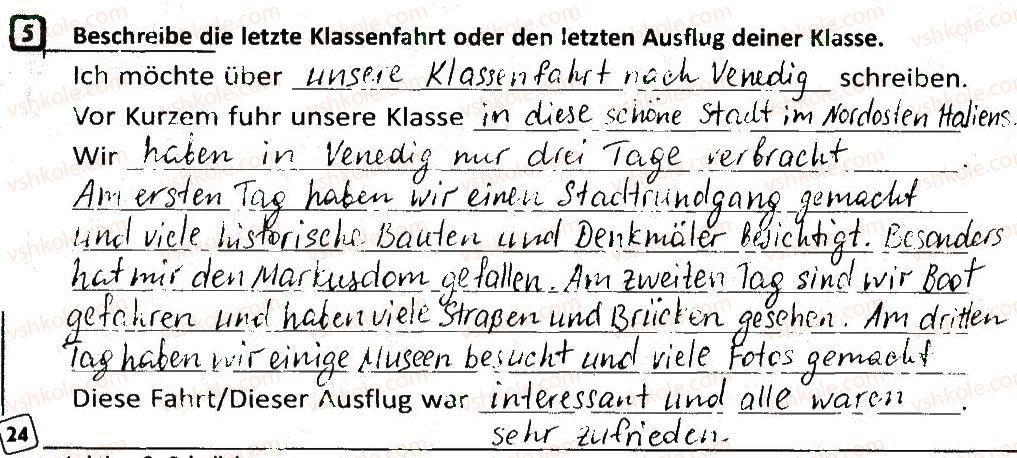 5 Beschreibe die letzte Klassenfahrt oder den letzten Ausflug deiner Klasse.
Ich möchte über unsere Klassenfahrt nach Venedig schreiben.
Vor Kurzem fuhr unsere Klasse in diese schöne Stadt im Nordosten Italiens.
Wir haben in Venedig nur drei Tage verbracht.
Am ersten Tag haben wir einen Stadtrundgang gemacht
und viele historische Bauten und Denkmäler besichtigt. Besonders
hat mir den Markusdom gefallen. Am zweiten Tag sind wir Boot
gefahren und haben viele Straßen und Brücken gesehen. Am dritten
Tag haben wir einige Museen besucht und viele Fotos gemacht
Diese Fahrt/Dieser Ausflug war interessant und alle waren.
sehr zufrieden.
24